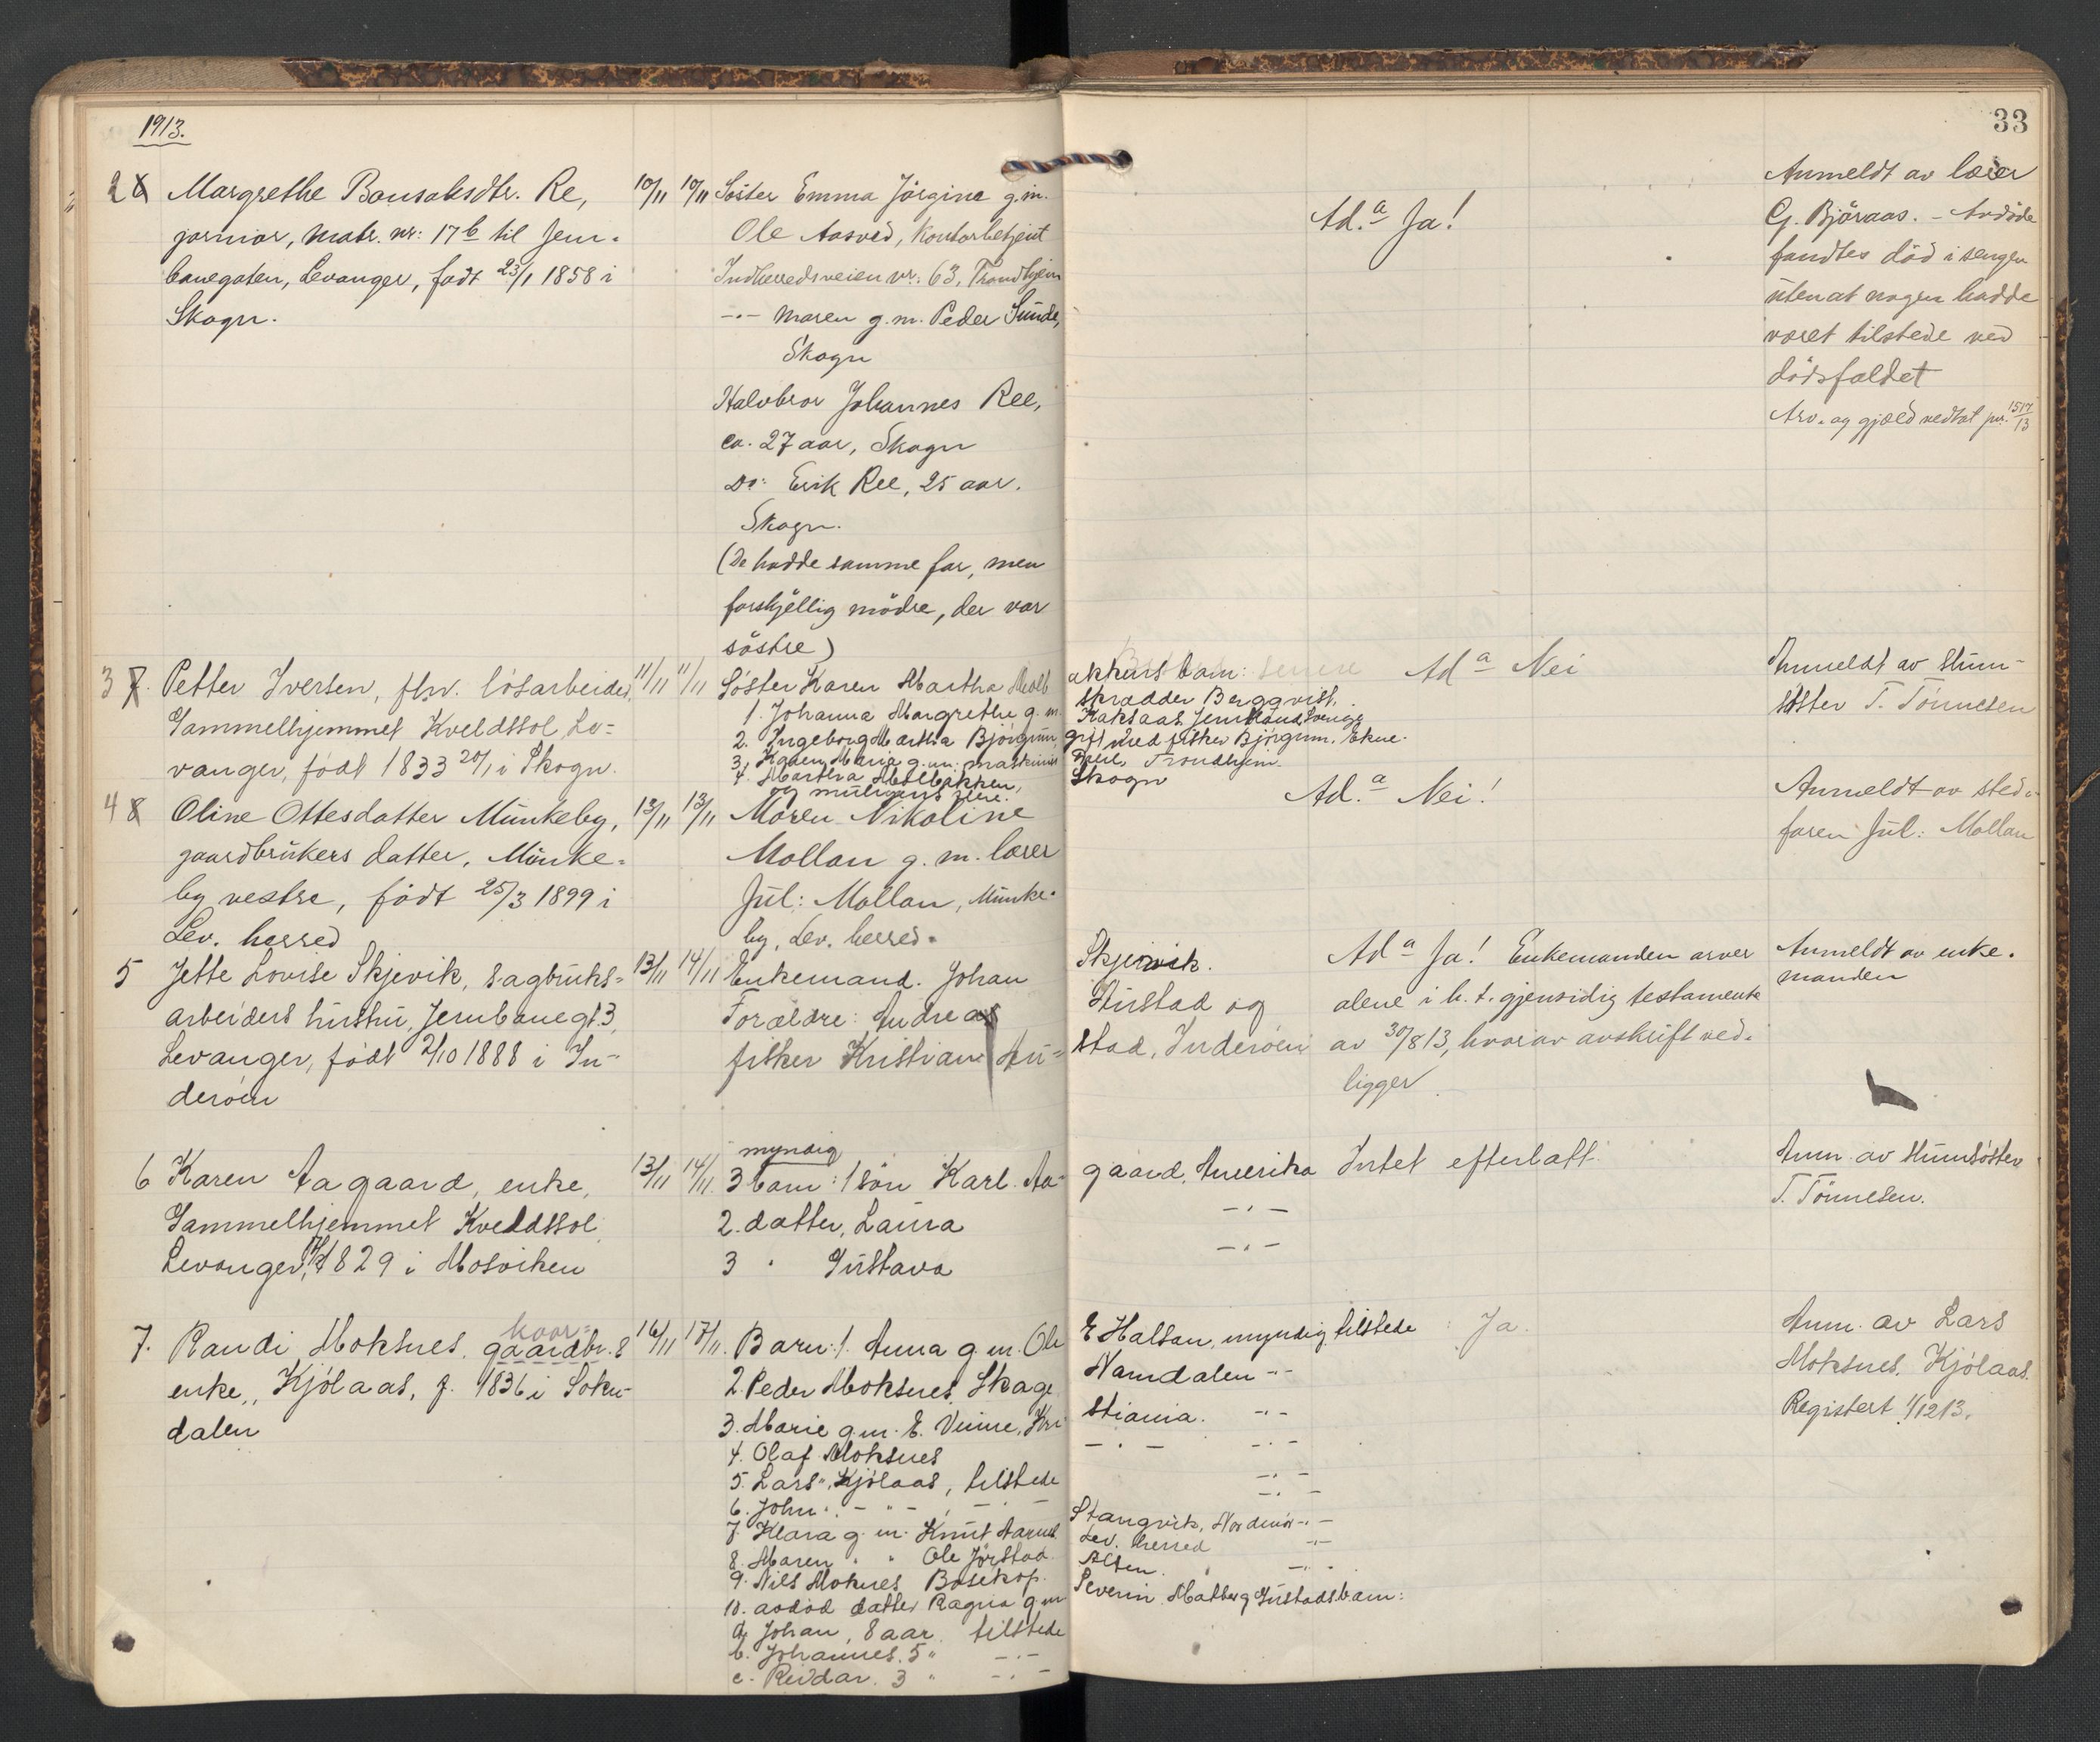 1913.
33
2 Margrethe Bausaksdtr. Re,
jomior, Matr. nr: 17 b til Jern-
banegaten, Levanger, født 23/1 1858 i
Skogn.
10/11 10/11
Søster Emma Jørgine g.m.
Ole Aasved, Kontorbetjent
Indherredsveien nr: 63, Trondhjem
-"- Maren g.m. Peder Sunde,
Skogn
Halvbror Johannes Ree,
ca. 27 aar, Skogn
Do: Erik Ree, 25 aar.
Skogn.
(De hadde samme far, men
forskjellig mødre, der var
søstre)
Ad. a Ja!
Anmeldt av læier
G. Bjøraas. - Avdøde
fandtes død i sengen
uten at nogen hadde
været tilstede ved
dødsfaldet
Arv. og gjæld vedtat jnr. 1517/13
3 Petter Iversen, fhv. løsarbeider,
Gammelhjemmet Kveldssol, Le-
vanger, født 1833 20/1 i Skogn.
11/11 11/11
Søster Karen Martha Molb akkars barn:
1. Johanna Margrethe g. m. skrædder Bergqvist,
Kaksaas, Jemtland, Sverige
2. Ingeborg Martha Bjørgum, gift med fisker Bjørgum, Ekne.
3. Karen Maria g. m. maskinist Trondhjem.
4. Martha Molbakken, Skogn
og muligens flere.
Ad a Nei
Anmeldt av Hum-
søster T. Tønnesen
4 Oline Ottesdatter Munkeby,
gaardbrukers datter, Munke-
by vestre, født 25/3 1899 i
Lev. herred
13/11 13/11
Moren Nikoline
Mollan g. m. lærer
Jul: Mollan, Munke-
by, Lev. herred.
Ad. a Nei!
Anmeldt av sted-
faren Jul: Mollan
5 Jette Lovise Skjevik, sagbruks-
arbeiders hustru, Jernbanegt. 3,
Levanger, født 2/10 1888 i In-
derøen
13/11 14/11
Enkemand. Johan Skjevik.
Forældre: Andreas Hustad og
fisker Kristian Hu- stad, Inderøen
Ad a Ja! Enkemanden arver
alene i h. t. gjensidig testamente
av 30/8 13, hvorav avskrift ved-
ligger
Anmeldt av enke-
manden
6 Karen Aagaard, enke,
Gammelhjemmet Kveldssol,
Levanger, 1829 i Mosviken
13/11 14/11
myndig
3 barn: 1 søn Karl Aa- gaard, Amerika
2. datter, Laura -"-
3 " Gustava -"-
Intet efterlatt.
Anm. av Humsøster
T. Tønnesen.
7. Randi Moksnes, gaardbr.s
kaar-
enke, Kjølaas, f. 1836 i Sokn-
dalen
16/11 17/11.
Barn: 1. Anna g. m. Ole E Halsan, myndig, tilstede
2. Peder Moksnes, Skage Namdalen -"-
3. Marie g. m. E. Vinne, Kri stiania. -"-
4. Olaf Moksnes -"- -"-
5. Lars " Kjølaas, tilstede -"-
6. John " -"- -"- -"-
7. Klara g. m. Knut Aarnes Stangvik, Nordmør -"-
8. Maren " " Ole Jørstad Lev. herred -"-
9. Nils Moksnes Bosekop. Alten. -"-
10. avdød datter Ragna g m Severin Matberg Gustads barn:
a. Johan, 8 aar, tilstede
b. Johannes, 5 " -"-
c. Reidar. 3 " -"-
Ja.
Anm. av Lars
Moksnes, Kjølaas.
Registert 1/12 13.